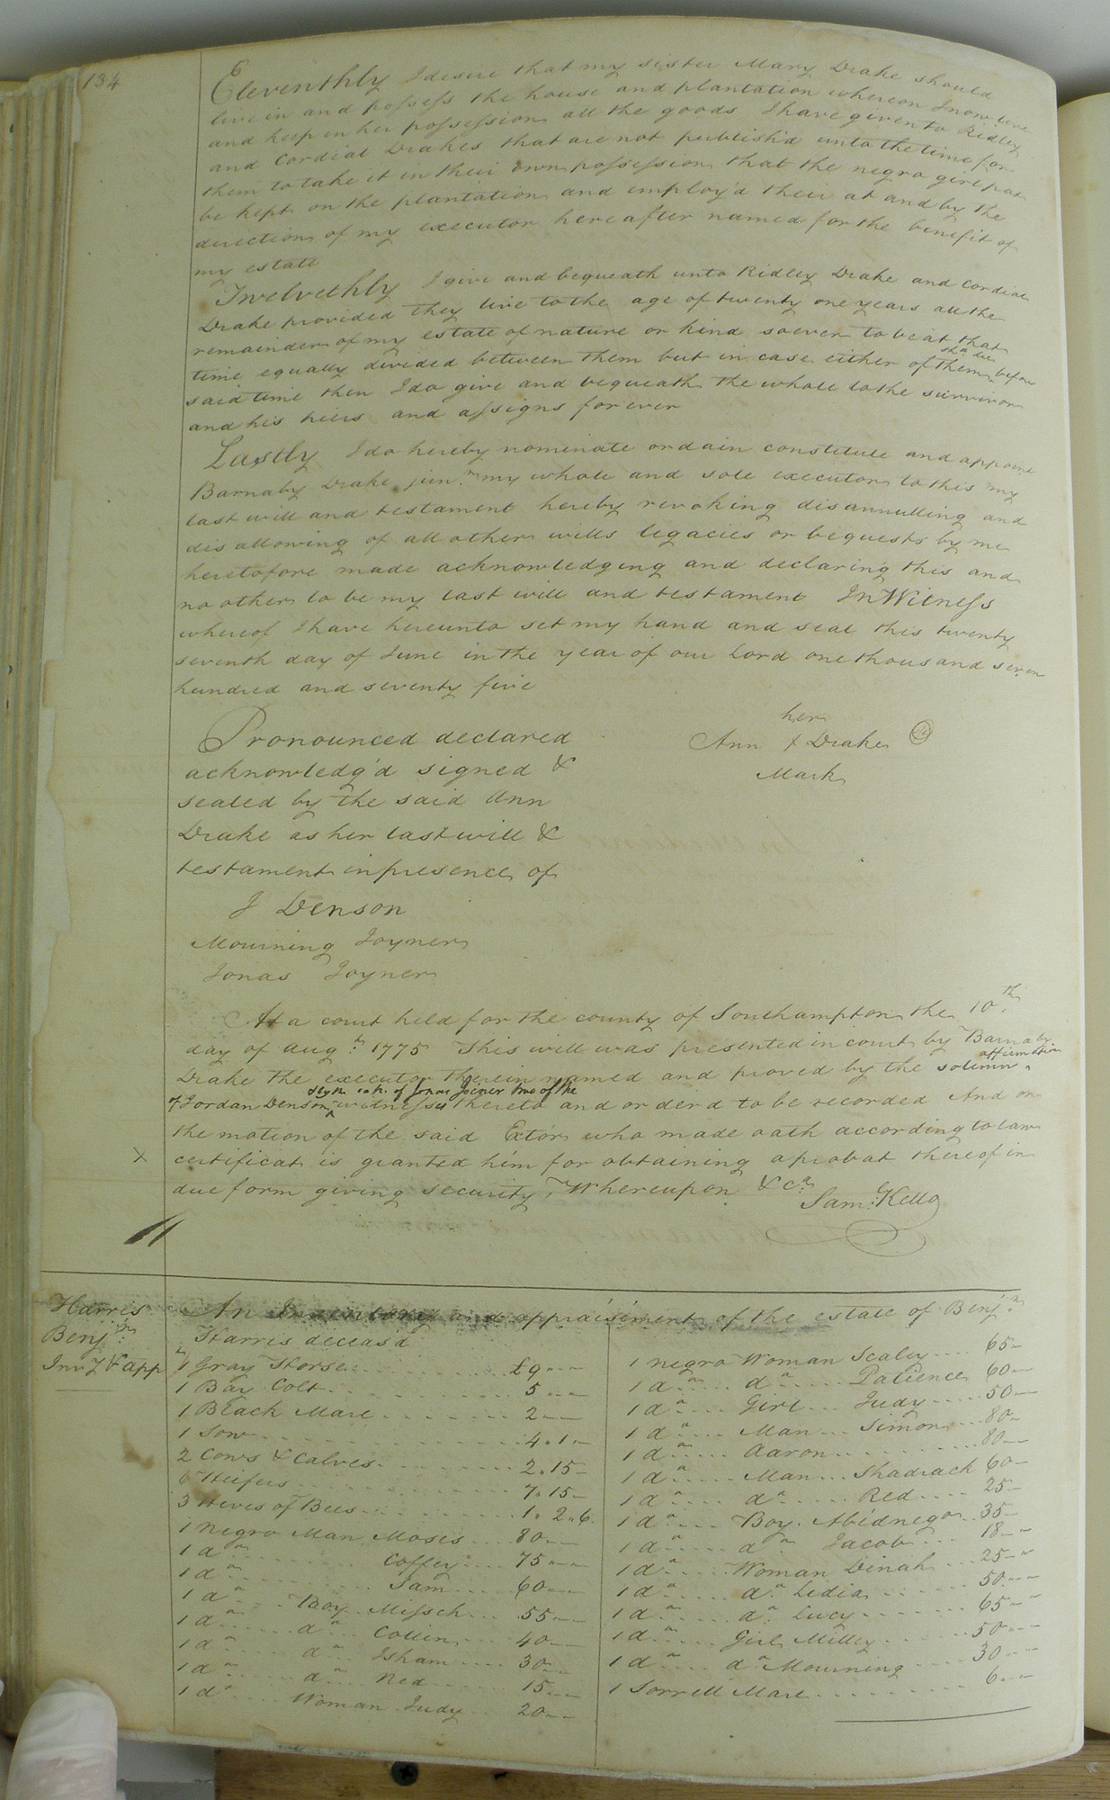 134
Eleventhly I desire that my sister Mary Drake should
live in and possess the house and plantation whereon I now live
and keep in her possession all the goods I have given to Ridley
and Cordial Drakes that are not publish'd unto the time for
them to take it in their own possession that the negro girl pat
be kept on the plantation and employ'd their at and by the
direction of my executor hereafter named for the benefit of
my estate
Twelvethly I give and bequeath unto Ridley Drake and Cordial
Drake provided they live to the age of twenty one years all the
remainder of my estate of nature or kind soever to be at that
time equally divided between them but in case either of them shou'd die before
said time then I do give and bequeath the whole to the survivor
and his heirs and assigns forever
Lastly I do hereby nominate ordain constitute and appoint
Barnaby Drake jun.r my whole and sole executor to this my
last will and testament hereby revoking disannulling and
disallowing of all other wills legacies or bequests by me
heretofore made acknowledging and declaring this and
no other to be my last will and testament In Witness
whereof I have hereunto set my hand and seal this twenty
seventh day of June in the year of our Lord one thousand seven
hundred and seventy five
her
Pronounced declared Ann X Drake
acknowledg'd signed & Mark
sealed by the said Ann
Drake as her last will &
testament in presence of
J Denson
Mourning Joyner
Jonas Joyner
At a court held for the county of Southampton the 10th
day of Aug.t 1775 This will was presented in court by Barnaby
Drake the executor therein named and proved by the solemn affirmation
of Jordan Denson & the oath of Jonas Joyner two of the witnesses thereto and order'd to be recorded And on
the motion of the said Exto'r who made oath according to law
X certificat is granted him for obtaining a probat thereof in
due form giving security, Whereupon &c.a
Sam.l Kello
Harris
Benj.n
Inv.y & app
An Inventory and appraisement of the estate of Benj.n
Harris deceas'd
1 Gray Horse £9
1 Bay Colt 5
1 Black Mare 2
1 Sow 4.1
2 Cows & Calves 2.15
6 Heifers 7.15
3 Hives of Bees 1.2.6
1 Negro Man Moses 80
1 do Coffey 75
1 do Sam 60
1 do Boy 55
1 do do Collin 40
1 do do Isham 30
1 do do Ned 15
1 do Woman Judy 20
1 negro Woman Scaley 65
1 do do Patience 60
1 do Girl Judy 50
1 do Man Simon 80
1 do Aaron 80
1 do Man Shadrack 60
1 do do Red 25
1 do Boy Abednego 35
1 do do Jacob 18
1 do Woman Dinah 25
1 do do Lidia 50
1 do do Lucy 65
1 do Girl Milley 50
1 do do Mourning 30
1 Sorrell Mare 6